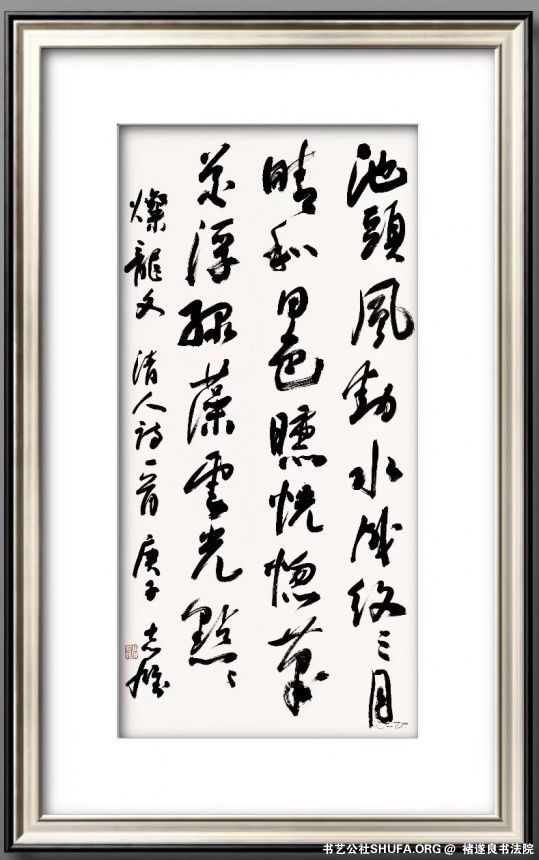 池頭風動水成紋三月
晴和日色曛恍惚萬
花浮綠藻雲光點〻
燦龍文 清人詩一首 庚子 志雄
书艺公社SHUFA.ORG @ 褚遂良书法院